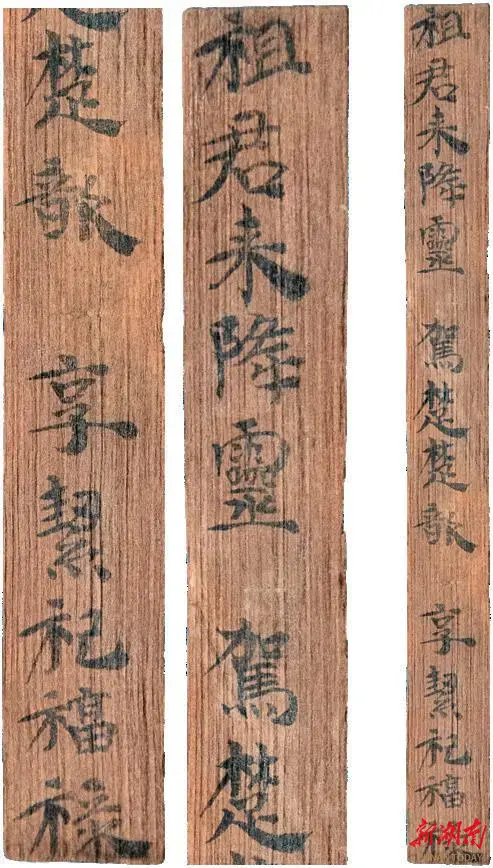 祖君来降靈 駕楚楚歆 享絜祀福
祖君来降靈 駕楚
楚歆 享絜祀福禄
新湖南